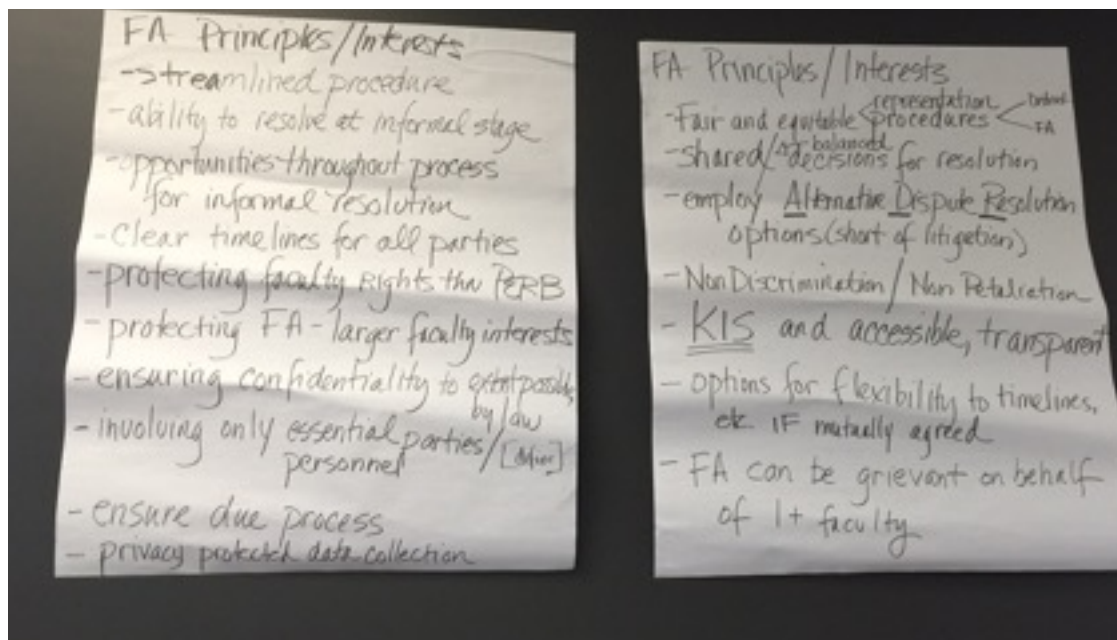 FA Principles/Interests
- Streamlined procedure
- ability to resolve at informal stage
- opportunities throughout process
for informal resolution
- Clear timelines for all parties
- protecting faculty Rights thru PERB
- protecting FA - larger faculty interests
- ensuring confidentiality to extent possible
by law
- involving only essential parties/[define]
personnel
- ensure due process
- privacy protected data collection
FA Principles/Interests
- Fair and equitable representation
procedures
FA
- Shared/ balanced
decisions for resolution
- employ Alternative Dispute Resolution
options (short of litigation)
- Non Discrimination / Non Retaliation
- KIS and accessible, transparent
- options for flexibility to timelines,
etc. IF mutually agreed
- FA can be grievant on behalf
of 1+ faculty